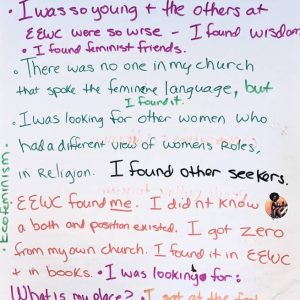 • I was so young + the others at
EEWC were so wise - I found wisdom
• I found feminist friends.
• There was no one in my church
that spoke the feminene language, but
I found it.
• I was looking for other women who
had a different view of womens Roles,
in Religion. I found other seekers.
• EEWC found me. I didn't know
a both and position existed. I got zero
from my own church. I found it in EEWC
+ in books. • I was looking for:
What is my place? • I sat at the
• Ecofeminism •